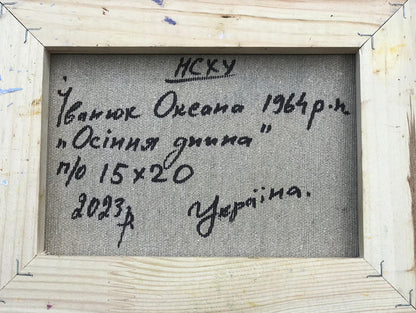 НСХУ
Іванюк Оксана 1964 р.н.
"Осіння днина"
п/о 15х20
2023р Україна.